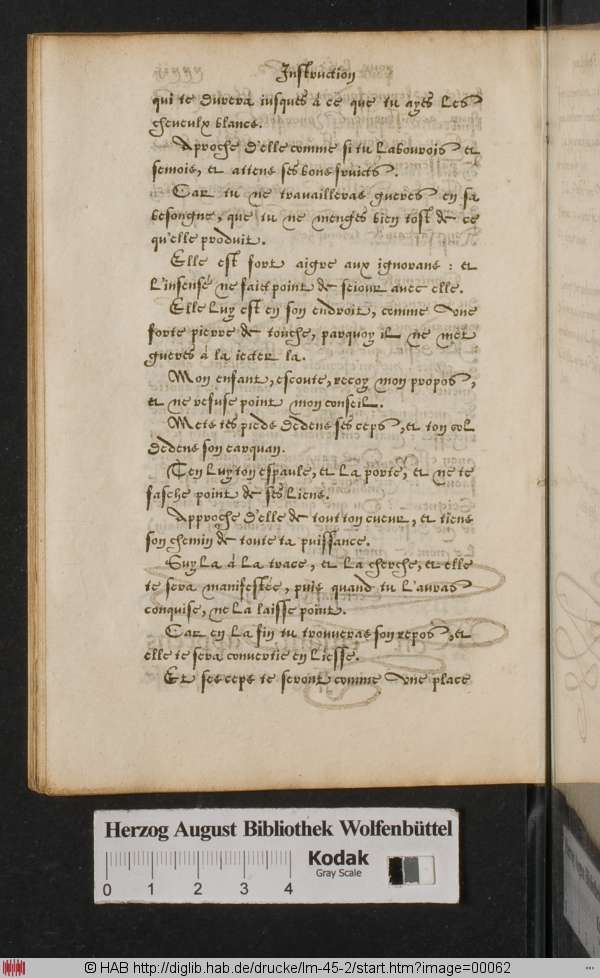 Instruction
qui te durera iusques à ce que tu ayes les
cheueulx blancs.
Aproche d'elle comme si tu labourois et
semois, et attens ses bons fruicts.
Car tu ne travailleras gueres en sa
besongne, que tu ne menges bien tost de ce
qu'elle produit.
Elle est fort aigre aux ignorans : et
l'insensé ne faict point de seiour auec elle.
Elle luy est en son endroit, comme vne
forte pierre de touche, parquoy il ne met
gueres à la iecter la.
Mon enfant, escoute, reçoy mon propos,
et ne refuse point mon conseil.
Mets tes pieds dedens ses ceps, et ton col
dedens son carquan.
Ten luy ton espaule, et la porte, et ne te
fasche point de ses liens.
Approche d'elle de tout ton cueur, et tiens
son chemin de toute ta puissance.
Suy la à la trace, et la cherche, et elle
te sera manifestée, puis quand tu l'auras
conquise, ne la laisse point.
Car en la fin tu trouueras son repos, et
elle te sera conuertie en liesse.
Et ses ceps te seront comme vne place
Herzog August Bibliothek Wolfenbüttel
Kodak
Gray Scale
0 1 2 3 4
© HAB http://diglib.hab.de/drucke/lm-45-2/start.htm?image=00062